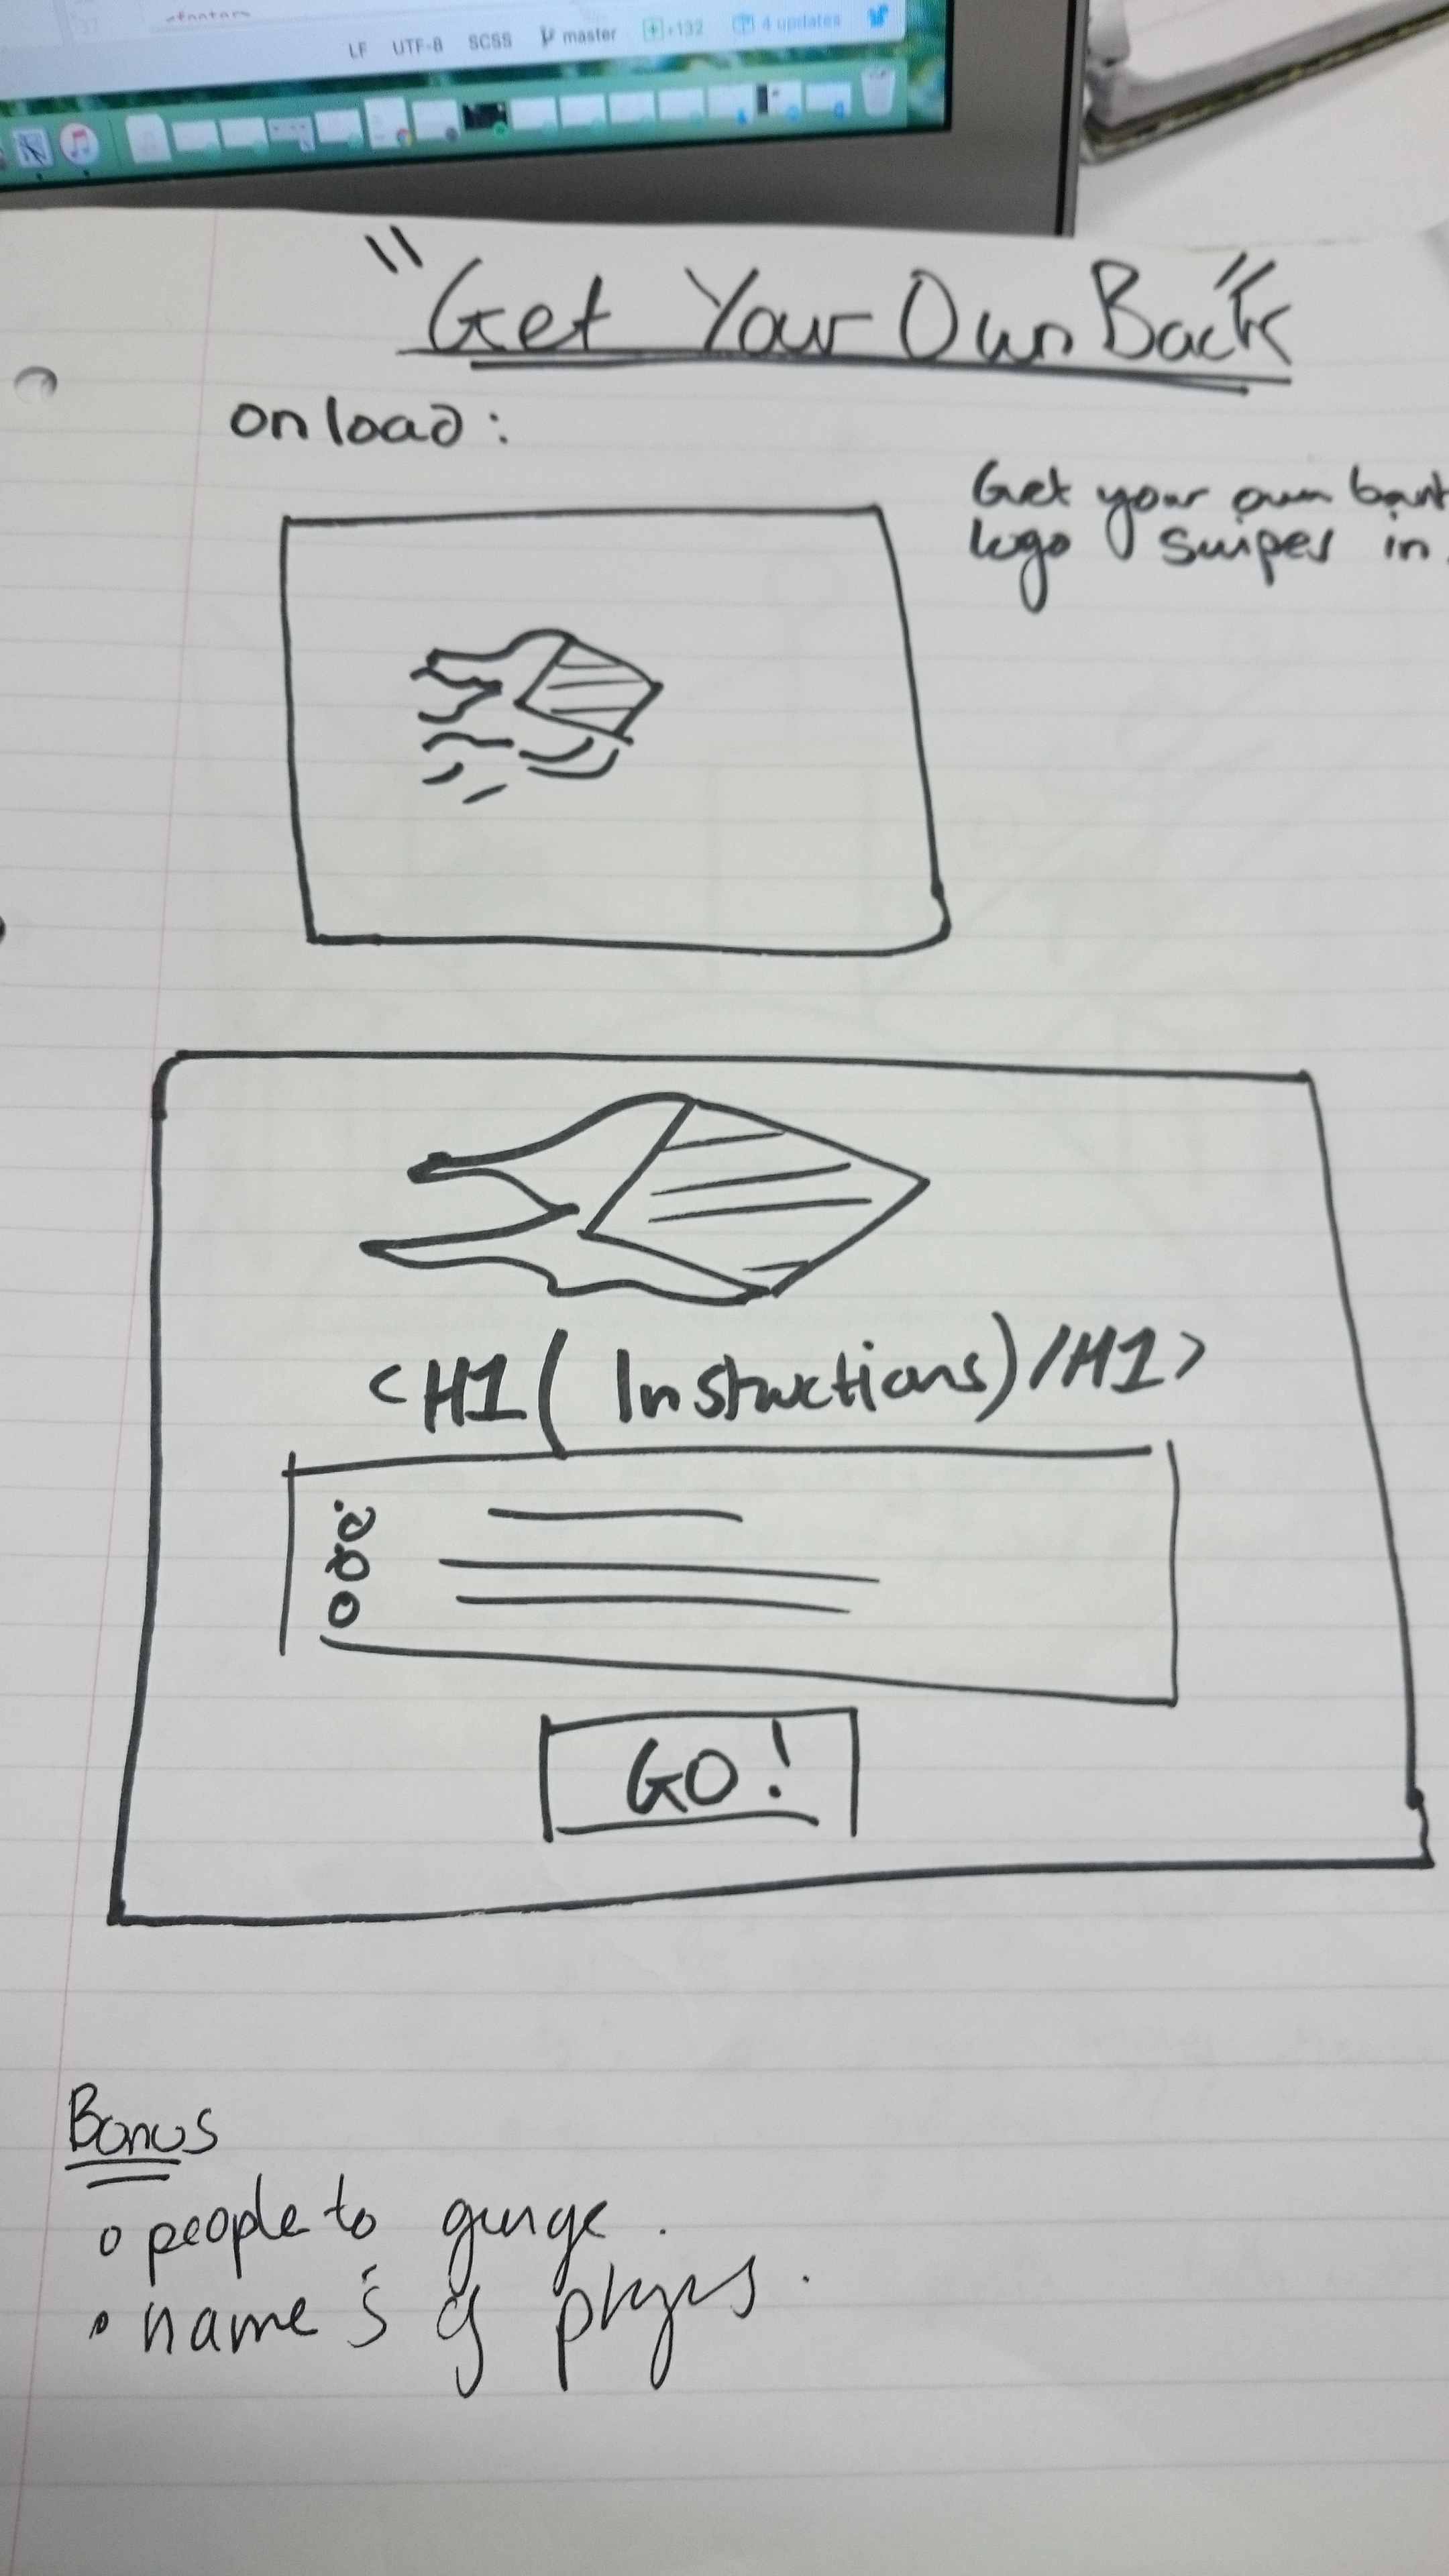 LF UTF-8 SCSS master +132 4 updates
"Get Your Own Back"
onload:
Get your own back
logo swipes in.
<H1( Instructions)/H1>
GO!
Bonus
o people to gunge.
• name's of players.